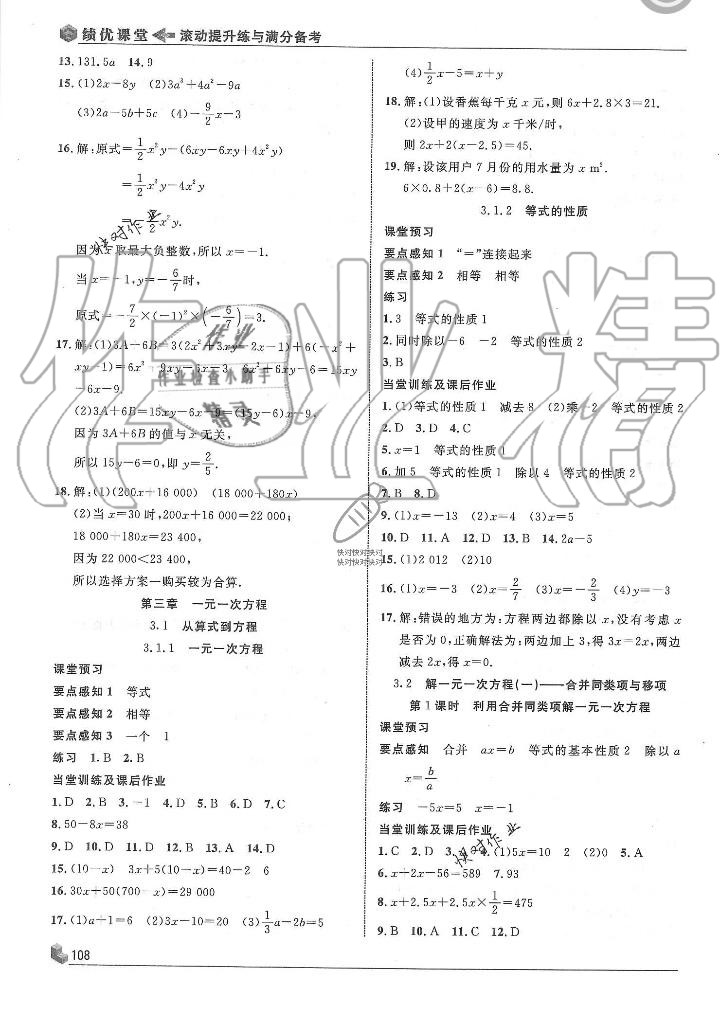 绩优课堂 滚动提升练与满分备考
13. 131.5a 14. 9
15. (1)2x-8y (2)3a³+4a²-9a
(3)2a-5b+5c (4)-9/2x-3
16. 解:原式=1/2x²y-(6xy-6xy+4x²y)
=1/2x²y-4x²y
=-7/2x²y.
因为x取最大负整数,所以x=-1.
当x=-1,y=-6/7时,
原式=-7/2×(-1)²×(-6/7)=3.
17. 解:(1)3A-6B=3(2x²+3xy-2x-1)+6(-x²+
xy-1)=6x²+9xy-6x-3-6x²+6xy-6=15xy
-6x-9.
(2)3A+6B=15xy-6x-9=(15y-6)x-9.
因为3A+6B的值与x无关,
所以15y-6=0,即y=2/5.
18. 解:(1)(200x+16 000) (18 000+180x)
(2)当x=30时,200x+16 000=22 000;
18 000+180x=23 400,
因为22 000<23 400,
所以选择方案一购买较为合算.
第三章 一元一次方程
3.1 从算式到方程
3.1.1 一元一次方程
课堂预习
要点感知1 等式
要点感知2 相等
要点感知3 一个 1
练习 1. B 2. B
当堂训练及课后作业
1. D 2. B 3. -1 4. D 5. B 6. D 7. C
8. 50-8x=38
9. D 10. D 11. D 12. B 13. A 14. D
15. (10-x) 3x+5(10-x)=40-2 6
16. 30x+50(700-x)=29 000
17. (1)a+1=6 (2)3x-10=20 (3)1/3a-2b=5
108
(4)1/2x-5=x+y
18. 解:(1)设香蕉每千克x元,则6x+2.8×3=21.
(2)设甲的速度为x千米/时,
则2x+2(x-2.5)=45.
19. 解:设该用户7月份的用水量为x m³.
6×0.8+2(x-6)=8.8.
3.1.2 等式的性质
课堂预习
要点感知1 “=”连接起来
要点感知2 相等 相等
练习
1. 3 等式的性质1
2. 同时除以-6 -2 等式的性质2
3. B
当堂训练及课后作业
1. (1)等式的性质1 减去8 (2)乘-2 等式的性质2
2. D 3. D 4. C
5. x=1 等式的性质1
6. 加5 等式的性质1 除以4 等式的性质2
7. B 8. D
9. (1)x=-13 (2)x=4 (3)x=5
10. D 11. A 12. D 13. B 14. 2a-5
15. (1)2 012 (2)10
16. (1)x=-3 (2)x=2/7 (3)x=-2/3 (4)y=-3
17. 解:错误的地方为:方程两边都除以x,没有考虑x
是否为0,正确解法为:两边加上3,得3x=2x,两边
减去2x,得x=0.
3.2 解一元一次方程(一)——合并同类项与移项
第1课时 利用合并同类项解一元一次方程
课堂预习
要点感知 合并 ax=b 等式的基本性质2 除以a
x=b/a
练习 -5x=5 x=-1
当堂训练及课后作业
1. C 2. D 3. A 4. (1)5x=10 2 (2)0 5. A
6. x+2x-56=589 7. 93
8. x+2.5x+2.5x×1/2=475
9. B 10. A 11. C 12. D
作业精灵
作业
作业检查小助手
精灵
快对作业
快对快对快对
快对快对快对
快对作业